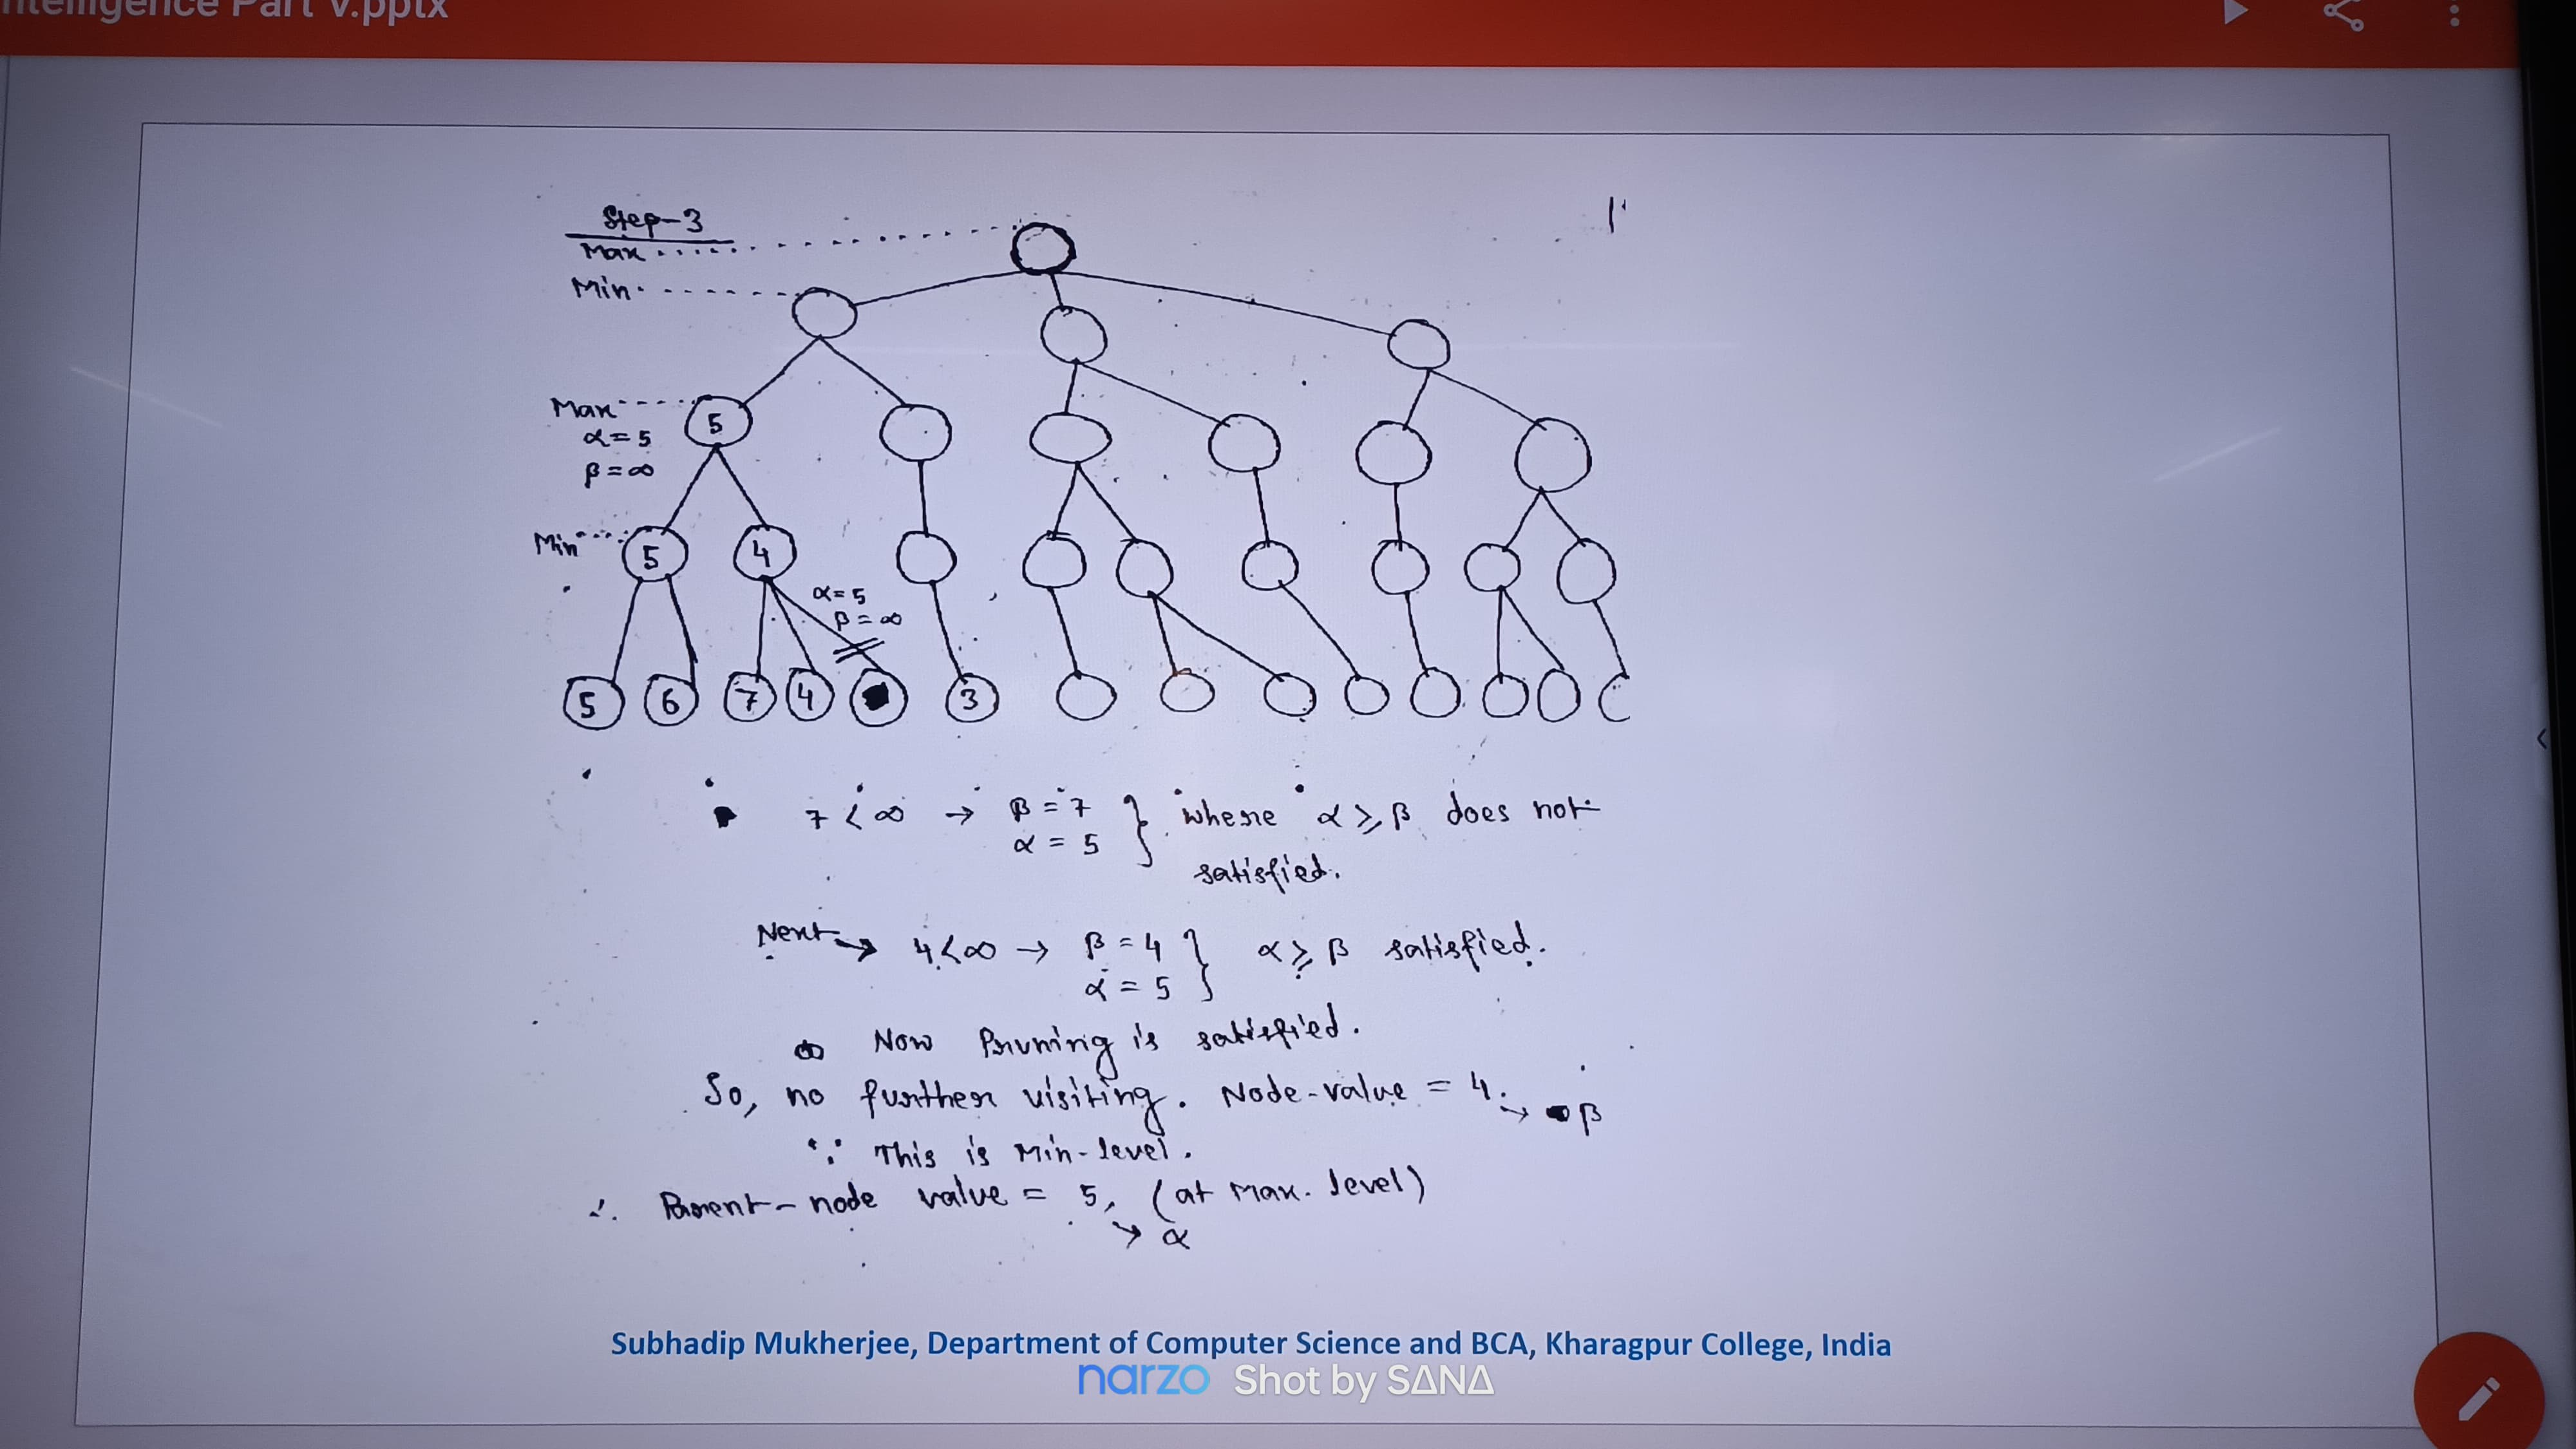 ntelligence Part V.pptx
Step-3
Max
Min
Max
α=5
β=∞
5
Min
5
4
α=5
β=∞
5 6 7 4 3
7 < ∞ → β = 7 } where α ≥ β does not
α = 5
satisfied.
Next → 4 < ∞ → β = 4 } α ≥ β satisfied.
α = 5
Now Pruning is satisfied.
So, no further visiting. Node-value = 4. → β
∵ This is Min-level.
∴ Parent-node value = 5, (at Max. level)
→ α
Subhadip Mukherjee, Department of Computer Science and BCA, Kharagpur College, India
narzo Shot by SΔNΔ